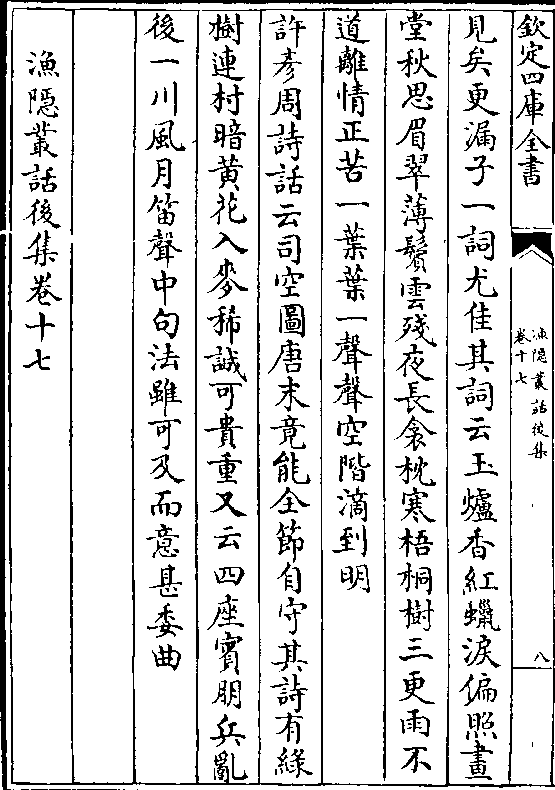 欽定四庫全書
漁隱叢話後集
卷十七
八
見矣更漏子一詞尤佳其詞云玉爐香紅蠟淚偏照畫
堂秋思眉翠薄鬢雲殘夜長衾枕寒梧桐樹三更雨不
道離情正苦一葉葉一聲聲空階滴到明
許彥周詩話云司空圖唐末竟能全節自守其詩有緑
樹連村暗黄花入麥稀誠可貴重又云四座賓朋兵亂
後一川風月笛聲中句法雖可及而意甚委曲
漁隱叢話後集卷十七